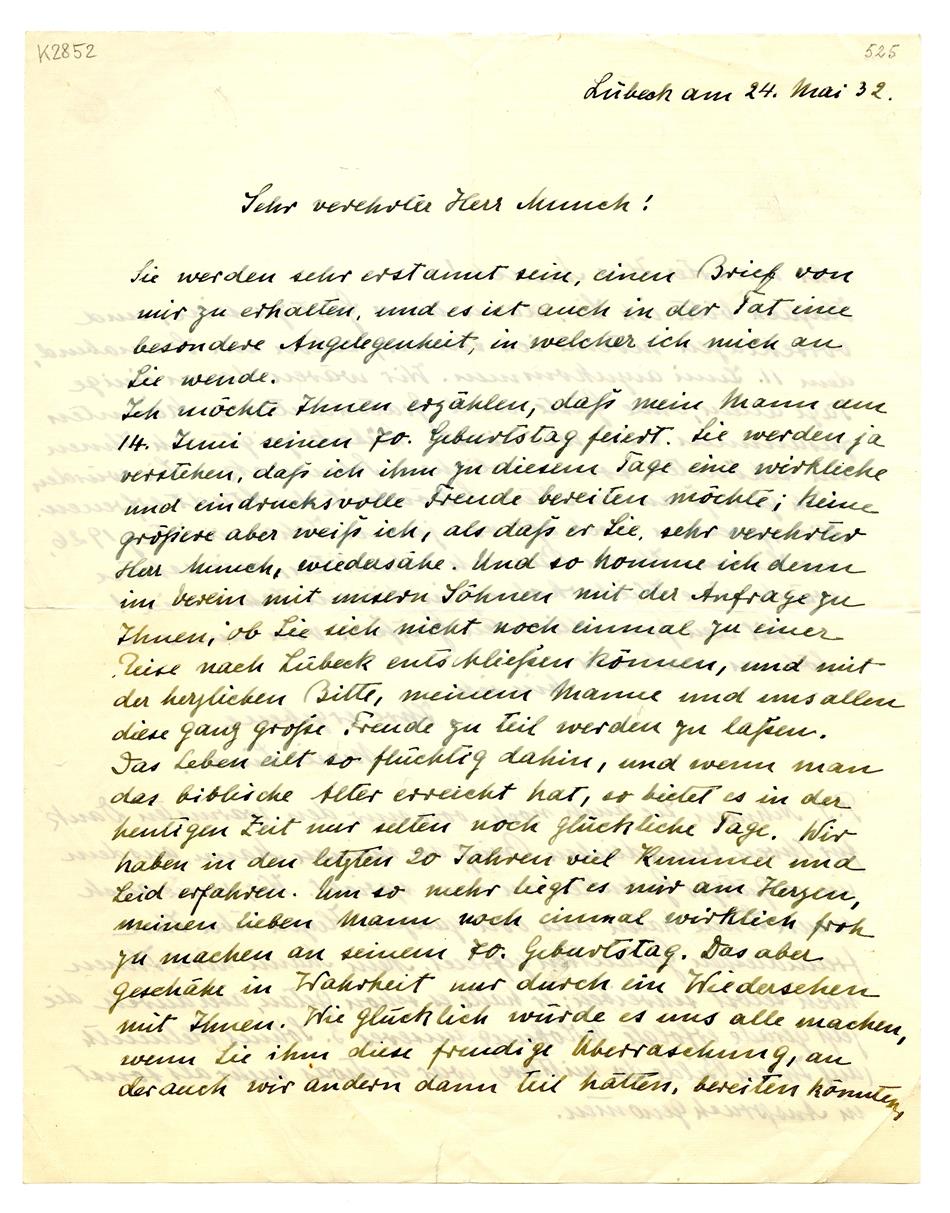 K2852
525
Lübeck am 24. Mai 32.
Sehr verehrter Herr Munch!
Sie werden sehr erstaunt sein, einen Brief von
mir zu erhalten, und es ist auch in der Tat eine
besondere Angelegenheit, in welcher ich mich an
Sie wende.
Ich möchte Ihnen erzählen, daß mein Mann am
14. Juni seinen 70. Geburtstag feiert. Sie werden ja
verstehen, daß ich ihm zu diesem Tage eine wirkliche
und eindrucksvolle Freude bereiten möchte; keine
größere aber weiß ich, als daß er Sie, sehr verehrter
Herr Munch, wiedersähe. Und so komme ich denn
im Verein mit unsern Söhnen mit der Anfrage zu
Ihnen, ob Sie sich nicht noch einmal zu einer
Reise nach Lübeck entschließen können, und mit
der herzlichen Bitte, meinem Manne und uns allen
diese ganz große Freude zu teil werden zu laßen.
Das Leben eilt so flüchtig dahin, und wenn man
das biblische Alter erreicht hat, so bietet es in der
heutigen Zeit nur selten noch glückliche Tage. Wir
haben in den letzten 20 Jahren viel Kummer und
Leid erfahren. Um so mehr liegt es mir am Herzen,
meinen lieben Mann noch einmal wirklich froh
zu machen an seinem 70. Geburtstag. Das aber
geschähe in Wahrheit nur durch ein Wiedersehen
mit Ihnen. Wie glücklich würde es uns alle machen,
wenn Sie ihm diese freudige Überraschung, an
der auch wir andern dann teil hätten, bereiten könnten,